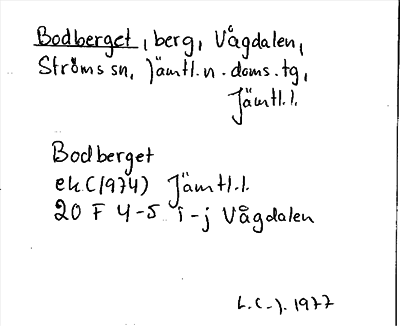 Bodberget, berg, Vågdalen,
Ströms sn, Jämtl. n. doms. tg,
Jämtl. l.
Bodberget
ek (1974) Jämtl. l.
20 F 4-5 i-j Vågdalen
L. C-J. 1977